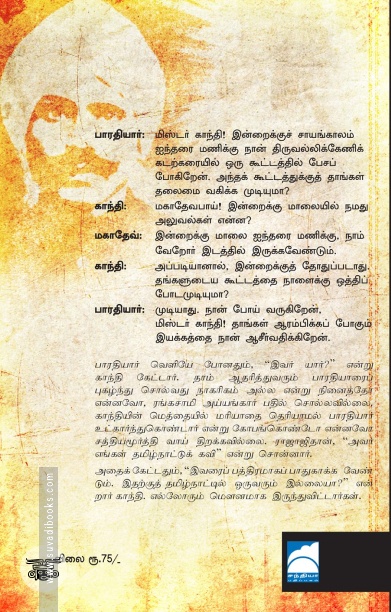 பாரதியார்: மிஸ்டர் காந்தி! இன்றைக்குச் சாயங்காலம்
ஐந்தரை மணிக்கு நான் திருவல்லிக்கேணிக்
கடற்கரையில் ஒரு கூட்டத்தில் பேசப்
போகிறேன். அந்தக் கூட்டத்துக்குத் தாங்கள்
தலைமை வகிக்க முடியுமா?
காந்தி: மகாதேவபாய்! இன்றைக்கு மாலையில் நமது
அலுவல்கள் என்ன?
மகாதேவ்: இன்றைக்கு மாலை ஐந்தரை மணிக்கு, நாம்
வேறோர் இடத்தில் இருக்கவேண்டும்.
காந்தி: அப்படியானால், இன்றைக்குத் தோதுப்படாது.
தங்களுடைய கூட்டத்தை நாளைக்கு ஒத்திப்
போடமுடியுமா?
பாரதியார்: முடியாது. நான் போய் வருகிறேன்,
மிஸ்டர் காந்தி! தாங்கள் ஆரம்பிக்கப் போகும்
இயக்கத்தை நான் ஆசீர்வதிக்கிறேன்.
பாரதியார் வெளியே போனதும், “இவர் யார்?” என்று
காந்தி கேட்டார். தாம் ஆதரித்துவரும் பாரதியாரைப்
புகழ்ந்து சொல்வது நாகரிகம் அல்ல என்று நினைத்தோ
என்னவோ, ரங்கசாமி அய்யங்கார் பதில் சொல்லவில்லை,
காந்தியின் மெத்தையில் மரியாதை தெரியாமல் பாரதியார்
உட்கார்ந்துகொண்டார் என்று கோபங்கொண்டோ என்னவோ
சத்தியமூர்த்தி வாய் திறக்கவில்லை. ராஜாஜிதான், “அவர்
எங்கள் தமிழ்நாட்டுக் கவி” என்று சொன்னார்.
அதைக் கேட்டதும், “இவரைப் பத்திரமாகப் பாதுகாக்க வேண்
டும். இதற்குத் தமிழ்நாட்டில் ஒருவரும் இல்லையா?” என்
றார் காந்தி. எல்லோரும் மௌனமாக இருந்துவிட்டார்கள்.
விலை ரூ.75/-
சந்தியா
பதிப்பகம்